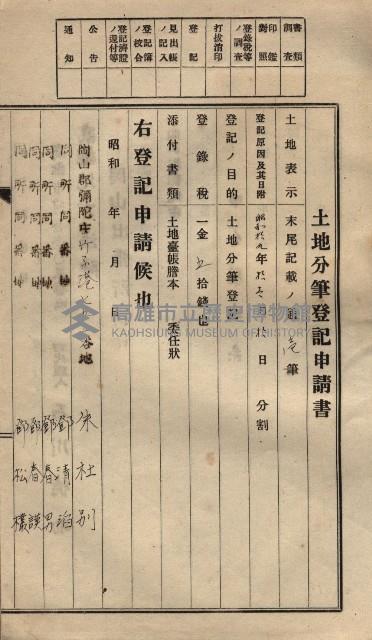 書類調査
印鑑対照
登録税等ノ調査
打抜消印
登記
見出帳ノ記入
登記簿ノ校合
登記済證ノ還付等
公告
通知
土地分筆登記申請書
土地表示 末尾記載ノ通 壱筆
登記原因及其日附 昭和拾九年 月 日 分割
登記ノ目的 土地分筆登記
登録税 一金 五拾錢也
添付書類 土地臺帳謄本 委任狀
右登記申請候也
昭和 年 月 日
岡山郡彌陀庄 番地 朱社別
同所同番地 鄧清
同所同番地 鄧春男
同所同番地 鄧春
同所同番地 鄧松
高雄市立歷史博物館
KAOHSIUNG MUSEUM OF HISTORY